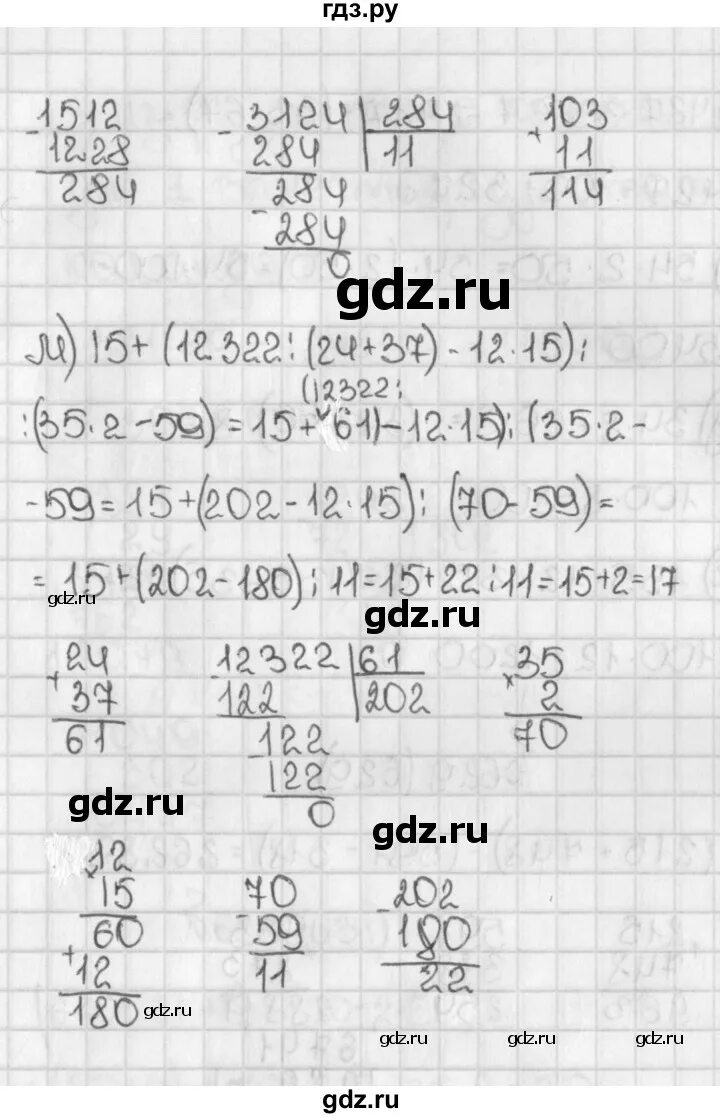 гдз.ру
-1512 -3124 | 284 103
1228 284 | 11 + 11
284 284 114
- 284
0
gdz.ru
м) 15+(12322:(24+37)-12·15):
(12322:
:(35·2-59)=15+(61)-12·15):(35·2-
-59=15+(202-12·15):(70-59)=
=15+(202-180):11=15+22:11=15+2=17
gdz.ru
gdz.ru
24 -12322 | 61 35
+ 37 122 | 202 × 2
61 122 70
122
0
gdz.ru
gdz.ru
12 70 -202
× 15 - 59 180
60 11 22
+ 12
180
gdz.ru
gdz.ru
gdz.ru
gdz.ru